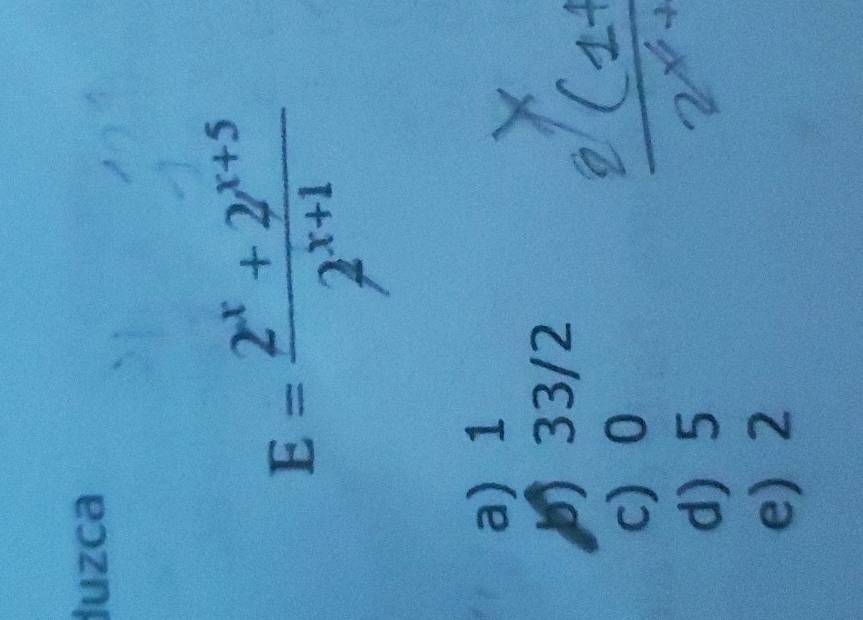 duzca
E = \frac{2^x + 2^{x+5}}{2^{x+1}}
a) 1
b) 33/2
c) 0
d) 5
e) 2
2^x (1+
2^x+